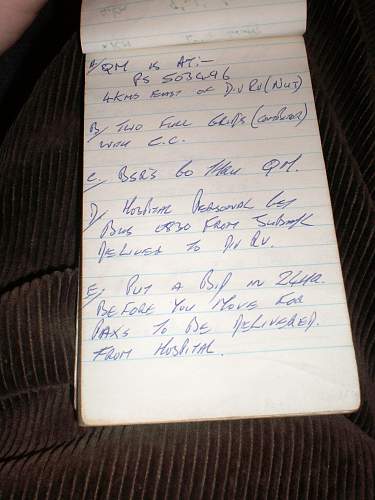 A/ QM is AT:-
PS 503496
4 KMS EAST OF DIV RV (NUT)
B/ TWO FULL GRIDS (COMPUTER)
WITH C.C.
C/ BSRS GO THRU QM.
D/ HOSPITAL PERSONAL
BUS 0830 FROM
DELIVER TO DIV RV.
E/ PUT A BID IN 24HR.
BEFORE YOU MOVE FOR
PAXS TO BE DELIVERED.
FROM HOSPITAL.